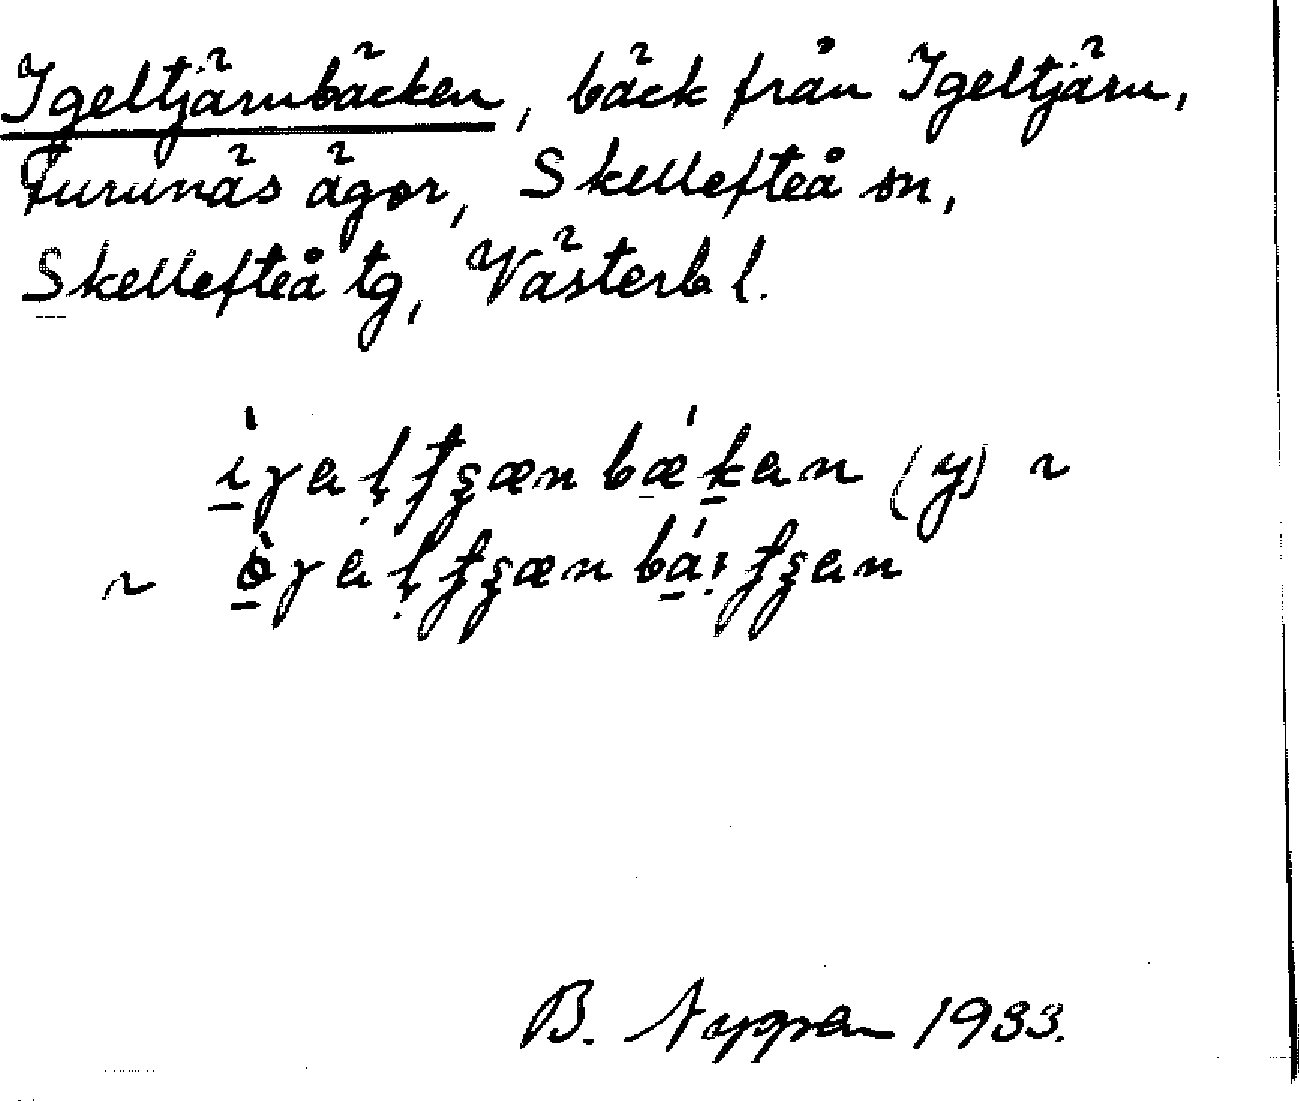 Igeltjärnbäcken, bäck från Igeltjärn,
Furunäs ägor, Skellefteå sn,
Skellefteå tg, Västerb l.
(y) ~
~
B. Nygren 1933.